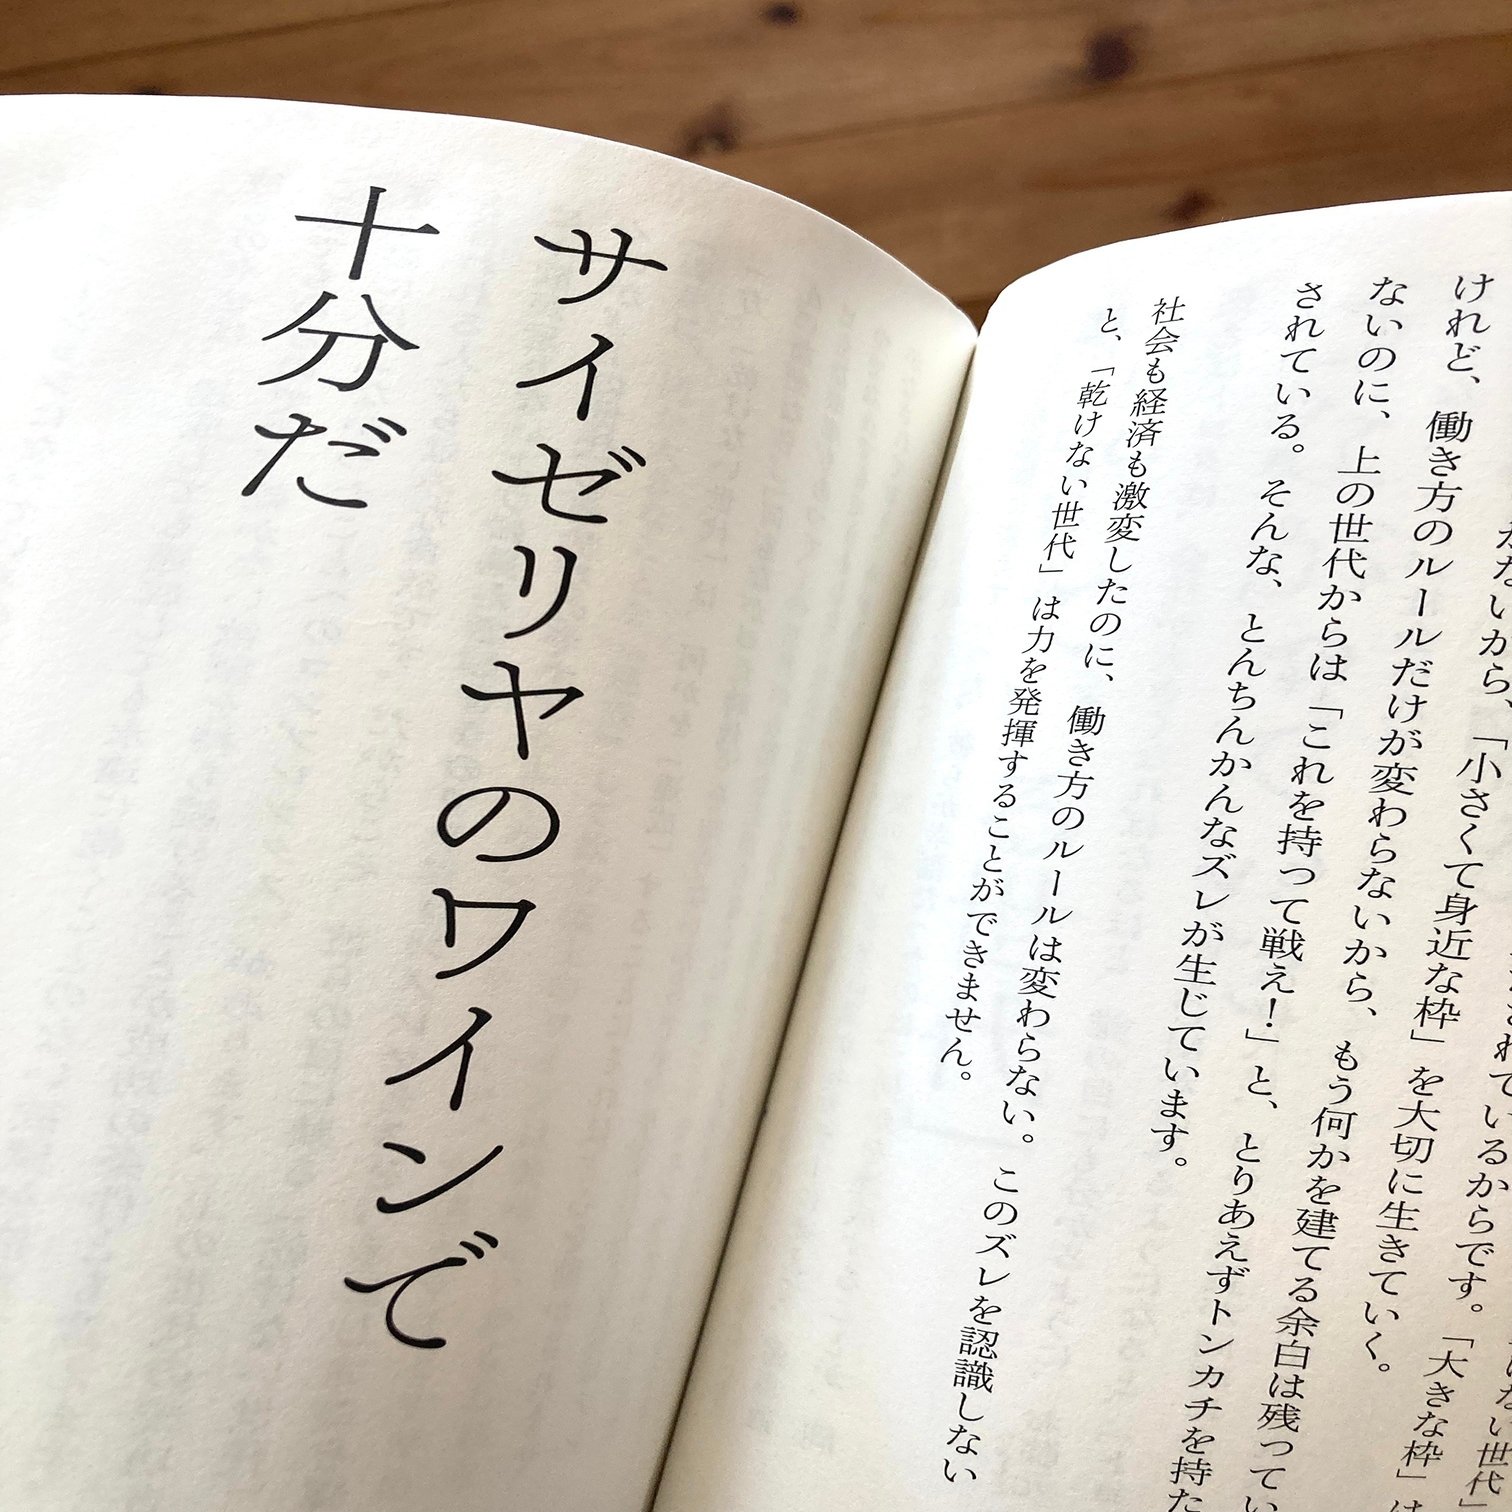 がないから、「小さくて身近な枠」を大切に生きていく。
けれど、働き方のルールだけが変わらないから、もう何かを建てる余白は残ってい
ないのに、上の世代からは「これを持って戦え！」と、とりあえずトンカチを持た
されている。そんな、とんちんかんなズレが生じています。
社会も経済も激変したのに、働き方のルールは変わらない。このズレを認識しない
と、「乾けない世代」は力を発揮することができません。
サイゼリヤのワインで
十分だ